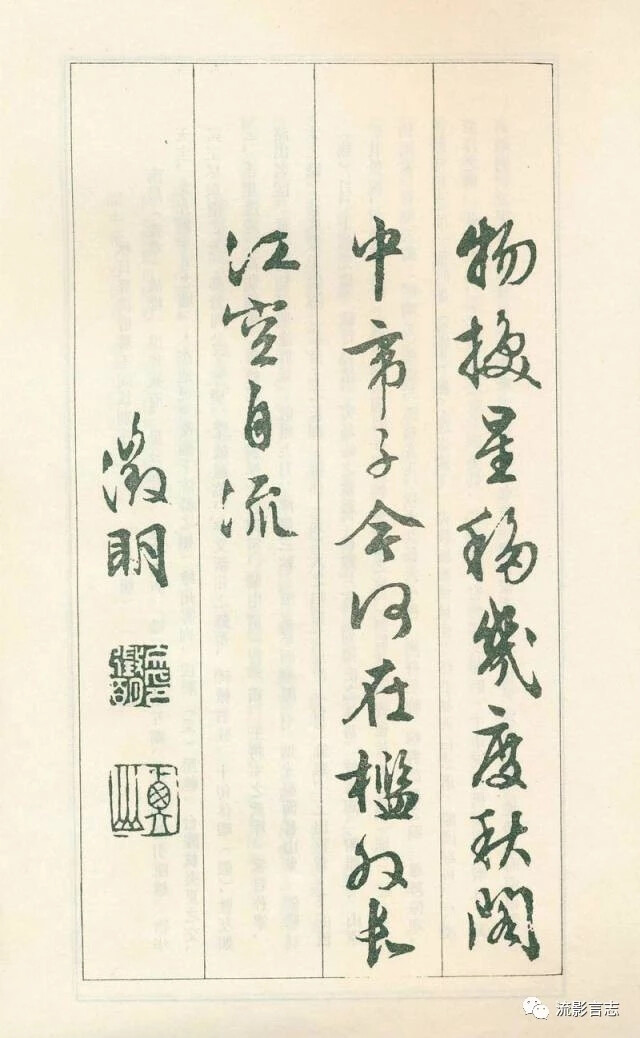 物换星移几度秋阁
中帝子今何在槛外长
江空自流
徵明
流影言志